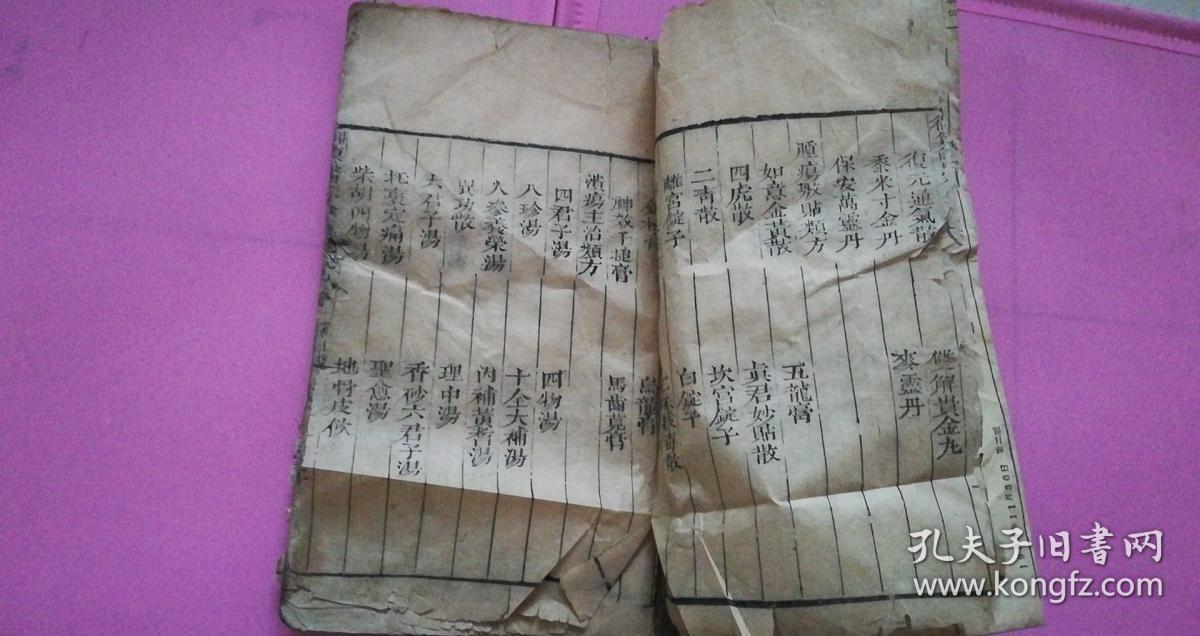 復元通氣散
雙解貴金丸
黍米寸金丹
麥靈丹
保安萬靈丹
腫瘍敷貼類方
如意金黃散
五龍膏
四虎散
眞君妙貼散
二青散
坎宮錠子
離宮錠子
白錠子
烏龍膏
神效千捶膏
馬齒莧膏
潰瘍主治類方
四君子湯
四物湯
八珍湯
十全大補湯
人參養榮湯
內補黃芪湯
異功散
理中湯
六君子湯
香砂六君子湯
托裏定痛湯
聖愈湯
柴胡四物湯
地骨皮飲
孔夫子旧書网
www.kongfz.com